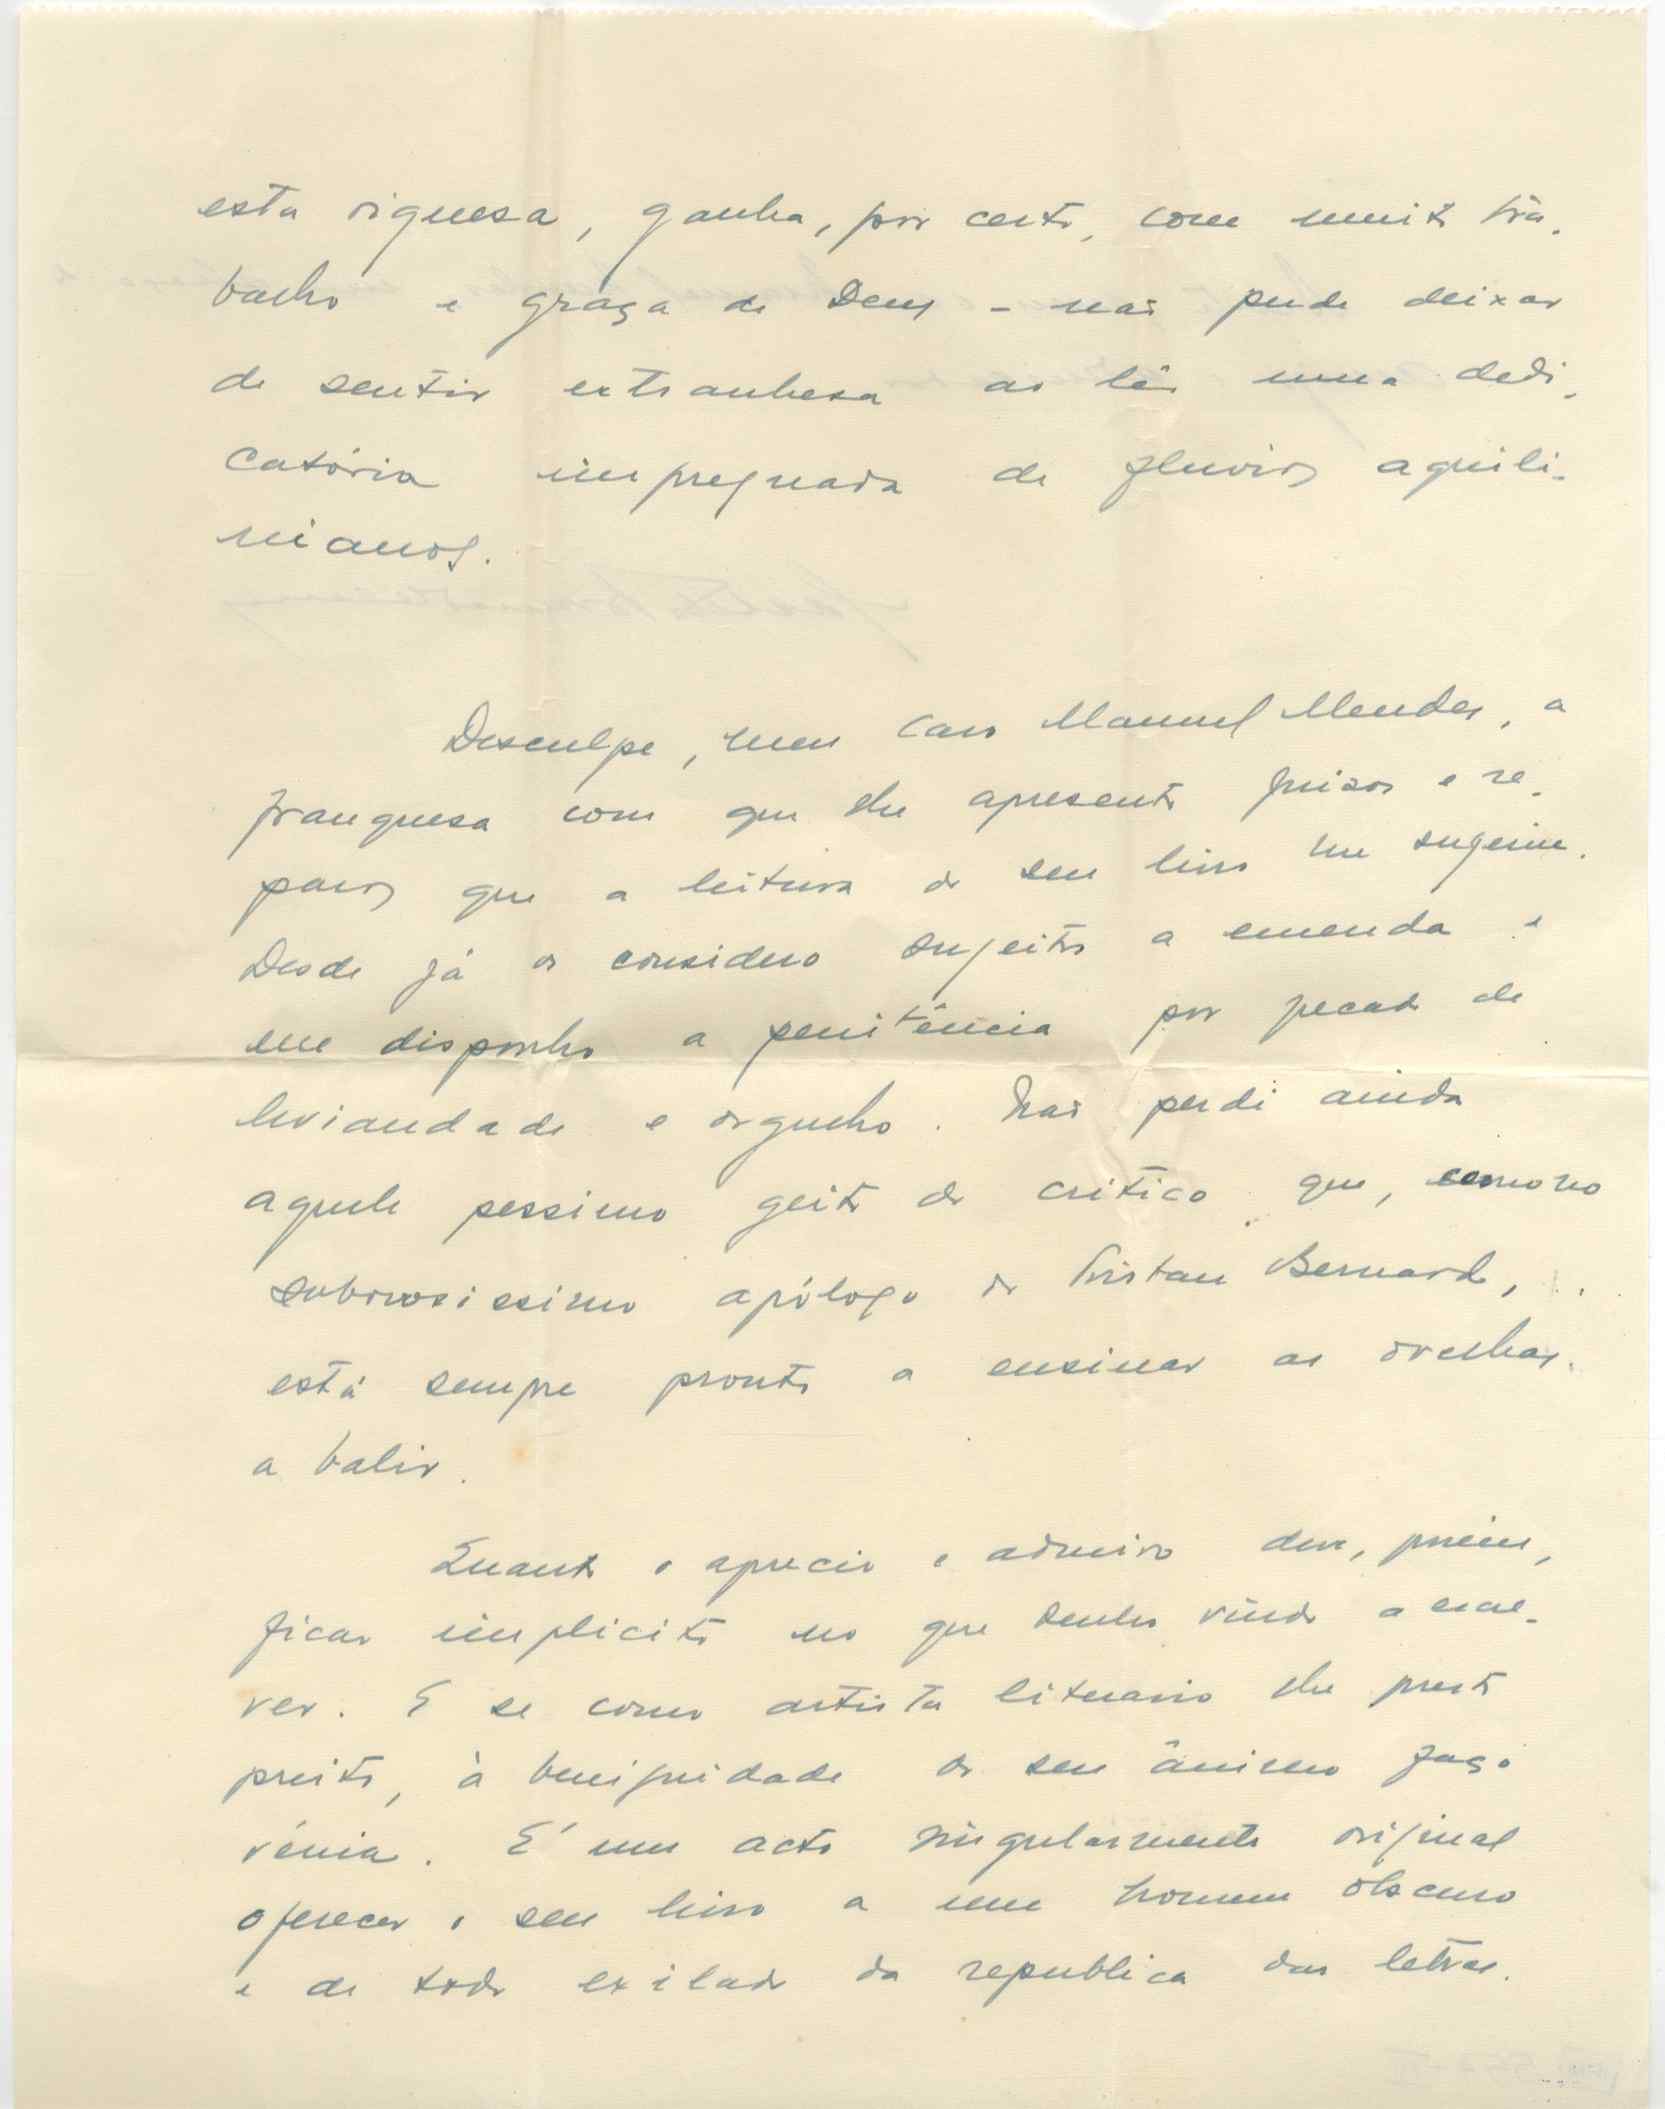 esta riquesa, ganha, por certo, com muito tra-
balho e graça de Deus - não pude deixar
de sentir extranhesa ao lêr uma dedi-
catória impregnada de fluvios aquili-
nianos.
Desculpe, meu caro Manuel Mendes, a
franquesa com que lhe apresento juizos e re-
paros que a leitura do seu livro me sugeriu.
Desde já os considero sujeitos a emenda e
me disponho a penitência por pecado de
leviandade e orgulho. Não perdi ainda
aquele pessimo geito do critico que, como no
saborosissimo apólogo de Tristan Bernard,
está sempre pronto a ensinar as ovelhas
a balir.
Quanto o aprecio e admiro deve, porém,
ficar implicito no que tenho vindo a escre-
ver. E se como artista literario lhe presto
preito, à benignidade do seu ânimo faço
vénia. É um acto singularmente original
oferecer o seu livro a um homem obscuro
e de todo exilado da republica das letras.